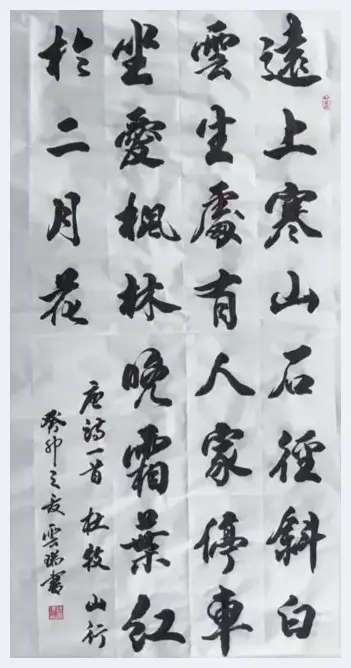 遠上寒山石徑斜白
雲生處有人家停車
坐愛楓林晚霜葉紅
於二月花
唐詩一首 杜牧 山行
癸卯之夏雲瑞書